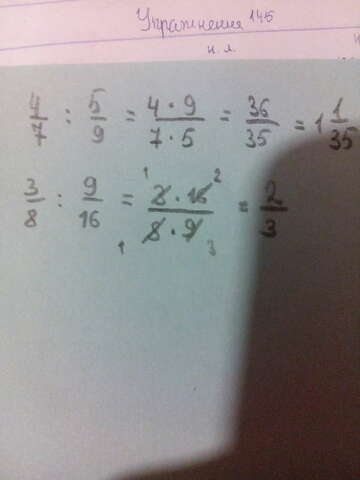 Упражнения 145
н. л.
4/7 : 5/9 = 4 · 9 / 7 · 5 = 36/35 = 1 1/35
3/8 : 9/16 = 3 · 16 / 8 · 9 = 2/3
1 2 1 3